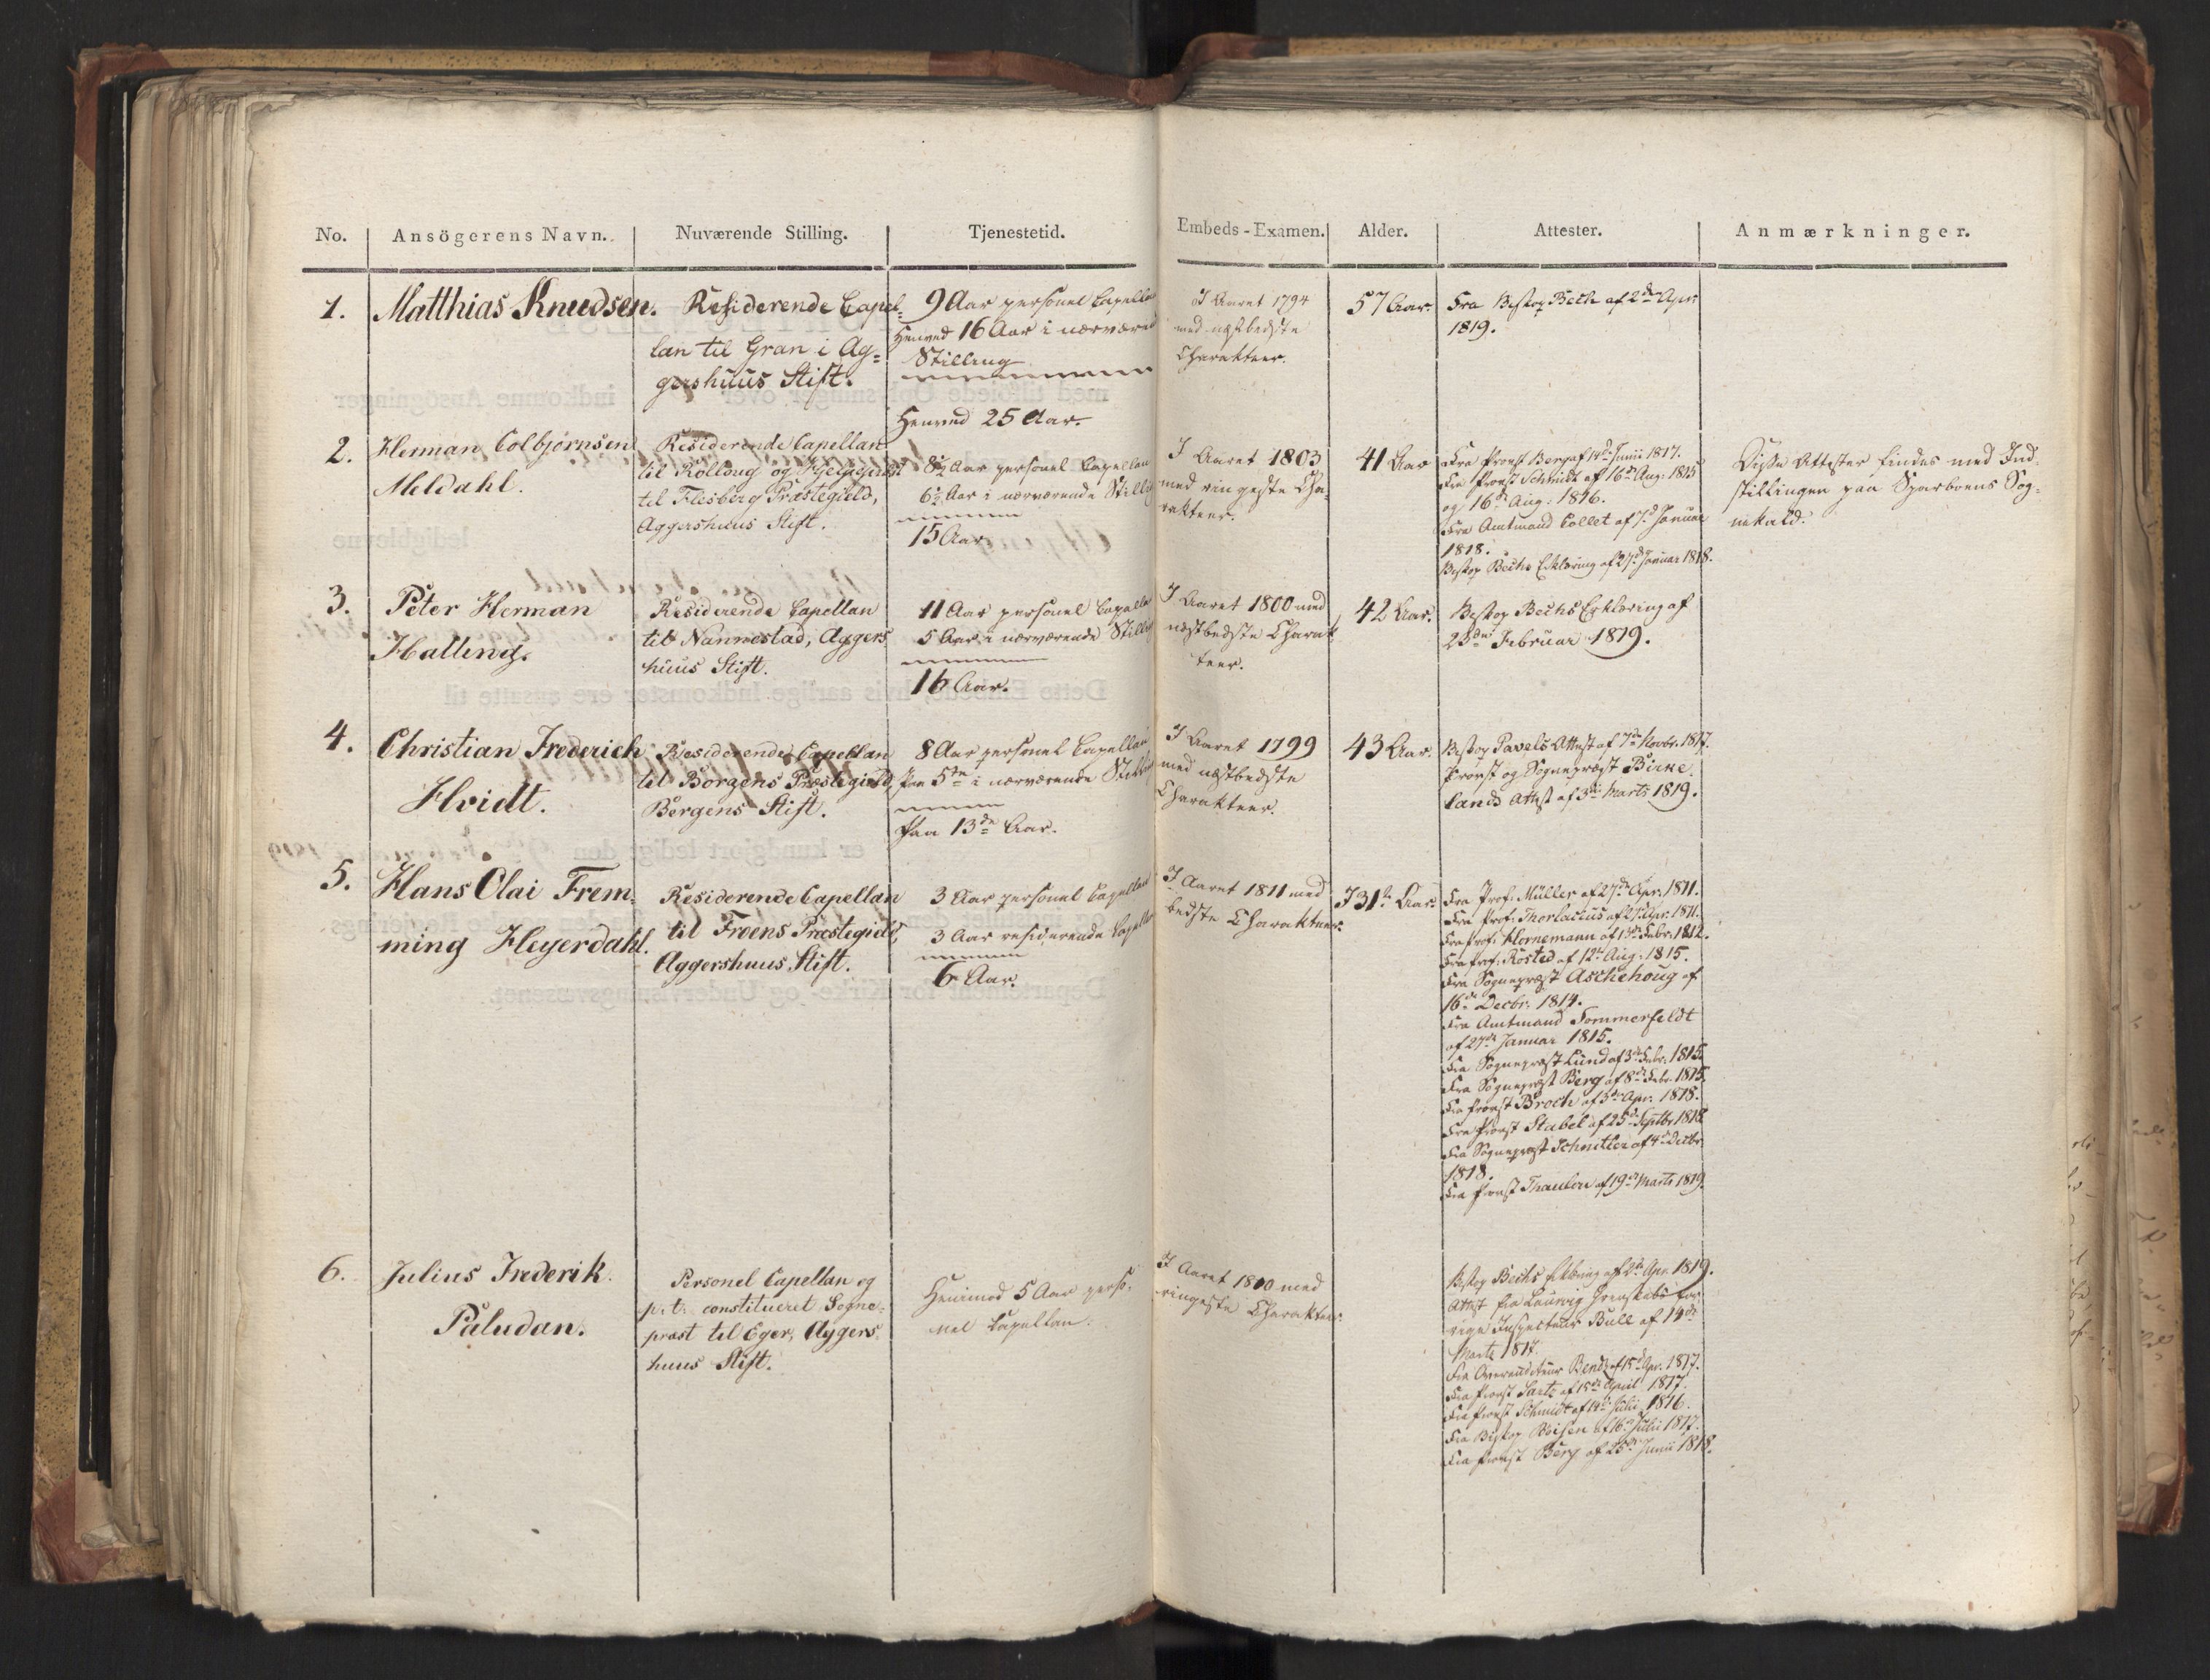 No. Ansögerens Navn. Nuværende Stilling. Tjenestetid. Embeds-Examen. Alder. Attester. Anmærkninger.
1. Matthias Knudsen.
Residerende Capel-
lan til Gran i Ag-
gershuus Stift.
9 Aar personel Capellan
Henved 16 Aar i nærværend
Stilling
Henved 25 Aar.
I Aaret 1794
med næstbedste
Charakteer.
57 Aar.
Fra Biskop Bech af 2den Apr.
1819.
2. Herman Colbjørnsen
Meldahl.
Residerende Capellan
til Rolloug og
til Flesberg Præstegield,
Aggershuus Stift.
8½ Aar personel Capellan
6½ Aar i nærværende Stilling
15 Aar
I Aaret 1803
med ringeste Cha-
rakteer.
41 Aar
Fra Provst Berg af 14d Junii 1817.
Fra Provst Schmidt af 16d Aug: 1815
og 16d Aug: 1816.
Fra Amtmand Collet af 7d Januar
1818.
Biskop Bechs Erklæring af 27d Januar 1818.
Disse Attester findes med Ind-
stillingen paa Sparboens Sog-
nekald.
3. Peter Herman
Halling.
Residerende Capellan
til Nannestad, Aggers-
huus Stift.
11 Aar personel Capella
5 Aar i nærværende Stilling
16 Aar.
I Aaret 1800 med
næstbedste Charak-
teer.
42 Aar.
Biskop Bechs Erklæring af
23de Februar 1819.
4. Christian Frederich
Hvidt.
Residerende Capellan
til Borgens Præstegield,
Bergens Stift.
8 Aar personel Capellan
Paa 5te i nærværende Stilling
Paa 13de Aar.
I Aaret 1799
med næstbedste
Charakteer.
43 Aar.
Biskop Pavels Attest af 7de Novbr. 1817.
Provst og Sognepræst Birke-
lands Attest af 3die Marts 1819.
5. Hans Olai Frem-
ming Heyerdahl.
Residerende Capellan
til Froens Præstegield,
Aggershuus Stift.
3 Aar personel Capellan
3 Aar residerende Capellan
6 Aar.
I Aaret 1811 med
bedste Charakteer.
I 31te Aar.
Fra Prof: Müller af 27de Apr: 1811.
Fra Prof: Thorlacius af 27 Apr: 1811.
Fra Prof: Hornemann af 13de Febr: 1812.
Fra Prof: Rosted af 12te Aug: 1815.
Fra Sognepræst Aschehoug af
16de Decbr: 1814.
Fra Amtmand Sommerfeldt
af 27de Januar 1815.
Fra Sognepræst Lund af 3de Febr: 1815.
Fra Sognepræst Berg af 8de Febr. 1815.
Fra Provst Broch af 3de Apr: 1818.
Fra Provst Stabel af 25de Septbr 1818
Fra Sognepræst Schnitler af 4de Decbr
1818.
Fra Provst Thaulow af 19de Marts 1819.
6. Julius Frederik
Paludan.
Personel Capellan og
p. t. constitueret Sogne-
præst til Eger, Aggers-
huus Stift.
Henimod 5 Aar perso-
nel Capellan.
I Aaret 1800 med
ringeste Charakteer.
Biskop Bechs Erklæring af 2de Apr. 1819.
Attest fra Laurvig Grevskabs for-
rige Inspecteur Bull af 14de
Marts 1817.
Fra Overauditeur Bendz af 15d Apr. 1817.
Fra Provst Sartz af 15de April 1817.
Fra Provst Schmidt af 14de Julii 1816.
Fra Biskop Boisen af 16de Julii 1817.
Fra Provst Berg af 25de Junii 1818.